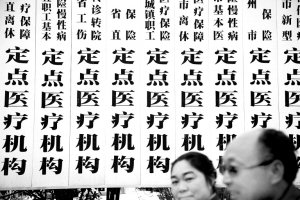 直离休
疗保障
定点医疗机构
职工基本
险慢性病
定点医疗机构
省工伤
诊转院
定点医疗机构
省直
保险
定点医疗机构
城镇职工
定点医疗机构
市离休
疗保障
定点医疗机构
基本医
慢性病
定点医疗机
州市
保险
定点医疗
市新型
定点医疗机构